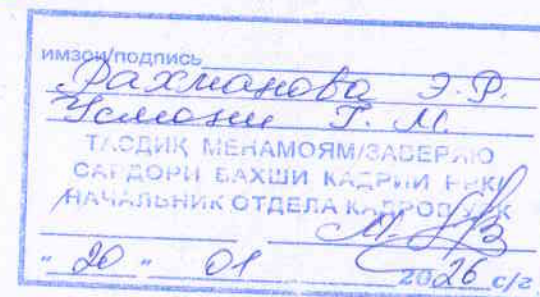 имзои/подпись
Рахманова Э. Р.
Усмони Г. М.
ТАСДИҚ МЕНАМОЯМ/ЗАВЕРЯЮ
САРДОРИ БАХШИ КАДРИИ
НАЧАЛЬНИК ОТДЕЛА КАДРОВ
" 20 " 01 2026 с/г